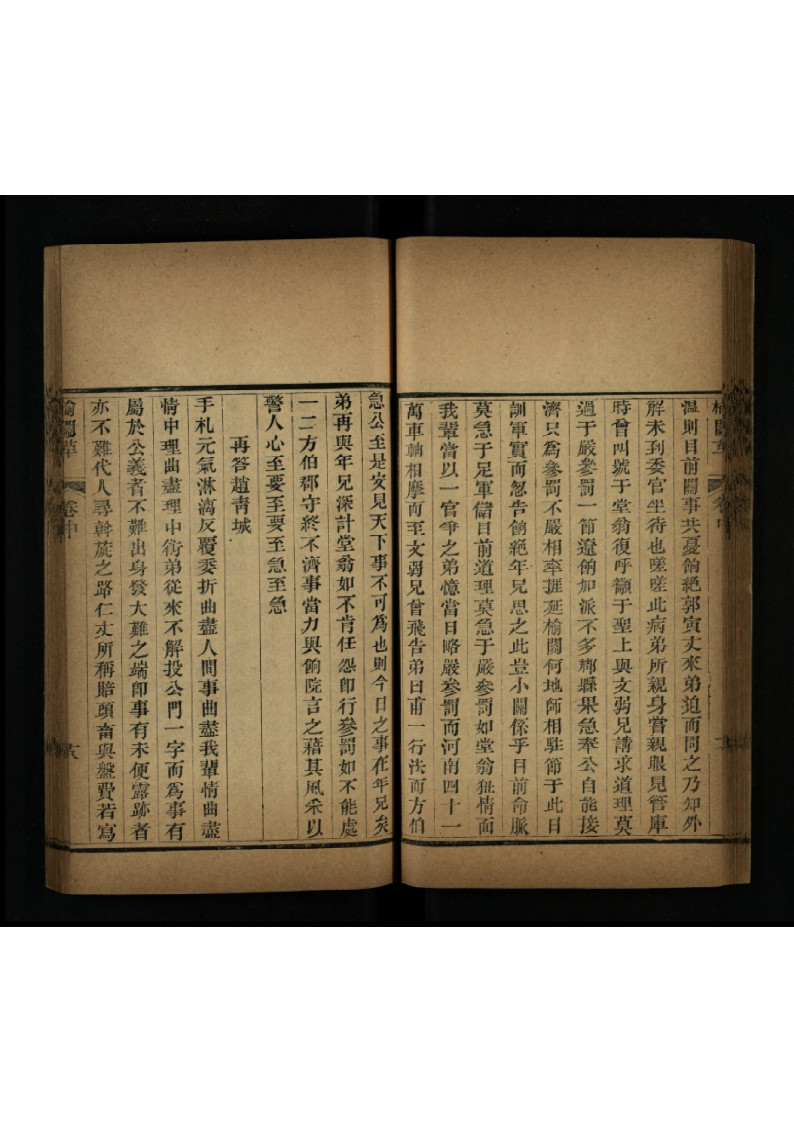 溫則目前關事共憂餉絕郭寅丈來弟迫而問之乃知外
解未到委官坐待也嗟嗟此病弟所親身嘗親眼見管庫
時曾叫號于堂翁復呼籲于聖上與文弱兄講求道理莫
過于嚴參罰一節遼餉加派不多郡縣果急奉公自能接
濟只為參罰不嚴相率捱延榆關何地師相駐節于此日
訓軍實而忽告餉絕年兄思之此豈小關係乎目前命脈
莫急于足軍儲目前道理莫急于嚴參罰如堂翁狃情面
我輩當以一官爭之弟憶當日略嚴參罰而河南四十一
萬車軸相摩而至文弱兄曾飛告弟曰甫一行法而方伯
急公至是安見天下事不可為也則今日之事在年兄矣
弟再與年兄深計堂翁如不肯任怨即行參罰如不能處
一二方伯郡守終不濟事當力與餉院言之藉其風采以
警人心至要至要至急至急
再答趙青城
手札元氣淋漓反覆委折曲盡人間事曲盡我輩情曲盡
情中理曲盡理中術弟從來不解投公門一字而為事有
屬於公義者不難出身發大難之端即事有未便露跡者
亦不難代人尋斡旋之路仁丈所稱賠頭畜與盤費若寫
榆關草
卷中